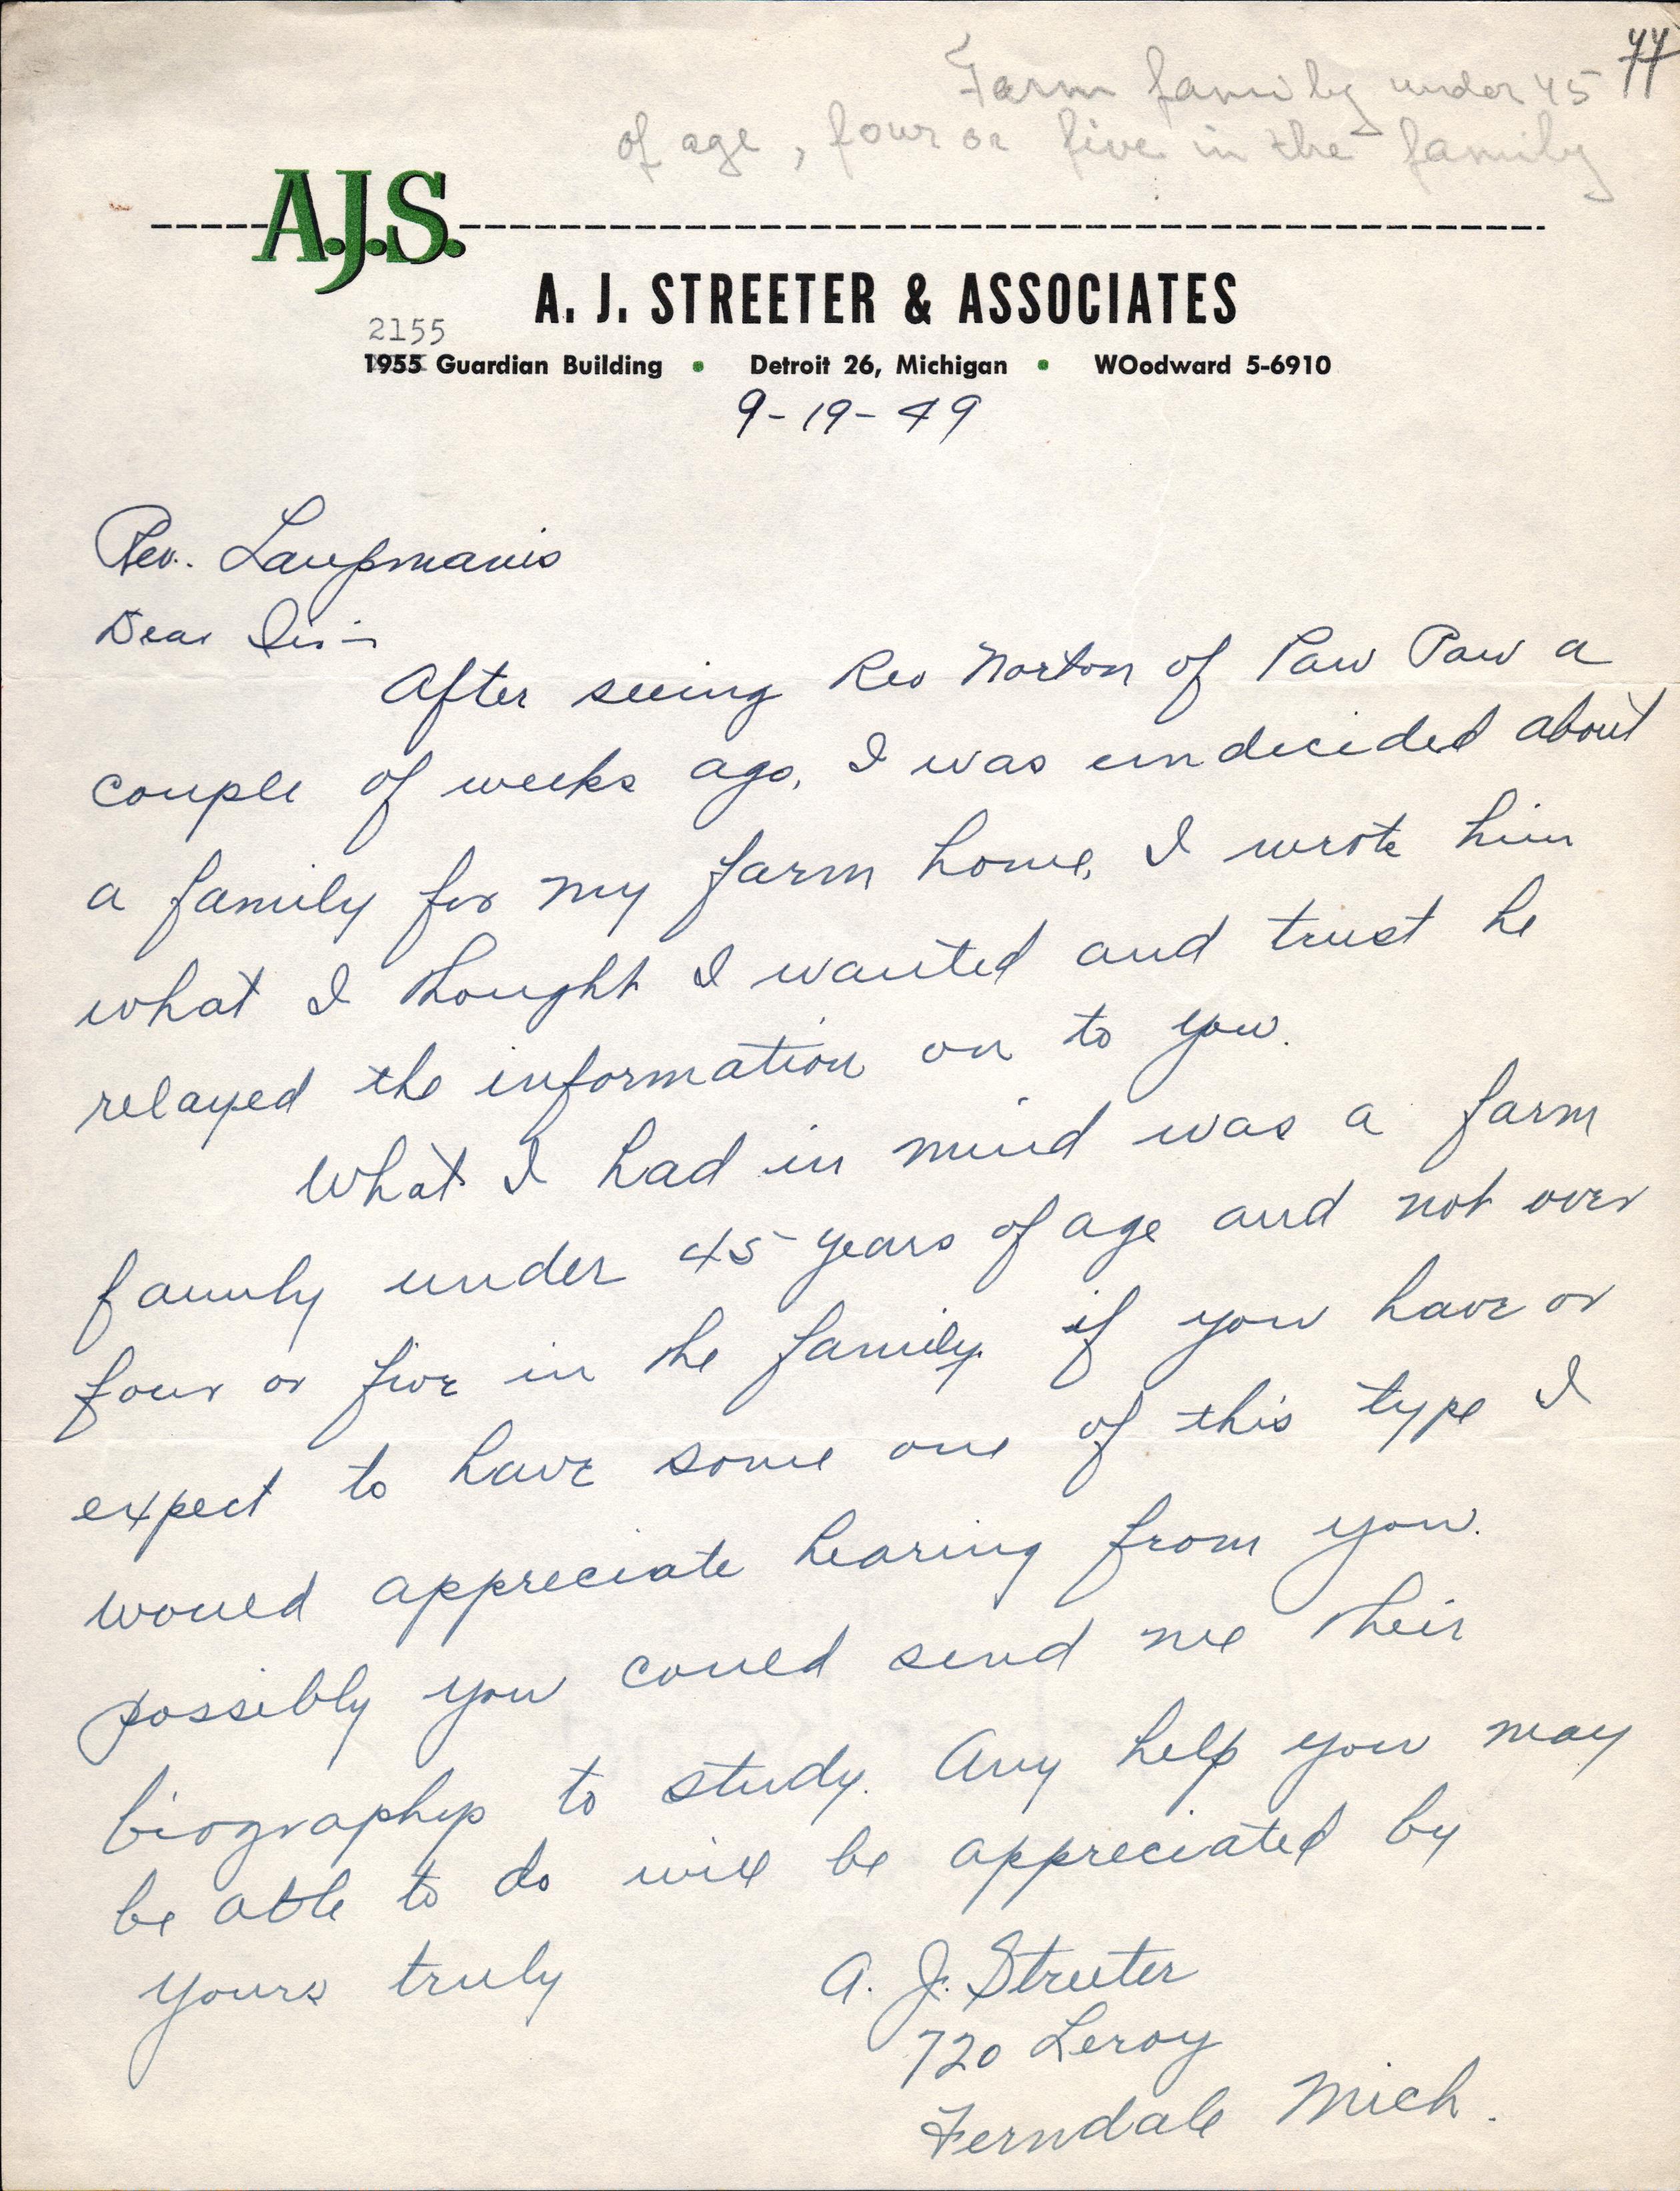 44
Farm family under 45
of age, four or five in the family
A.J.S.
A. J. STREETER & ASSOCIATES
2155
1955 Guardian Building • Detroit 26, Michigan • WOodward 5-6910
9-19-49
Rev. Laupmanis
Dear Sir:-
After seeing Rev Norton of Paw Paw a
couple of weeks ago, I was undecided about
a family for my farm home, I wrote him
what I thought I wanted and trust he
relayed the information on to you.
What I had in mind was a farm
family under 45 years of age and not over
four or five in the family. if you have or
expect to have some one of this type I
would appreciate hearing from you.
possibly you could send me their
biographys to study. Any help you may
be able to do will be appreciated by
yours truly
A. J. Streeter
720 Leroy
Ferndale Mich.